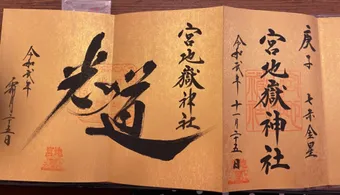 庚子　七赤金星
宮地嶽神社
令和弐年　十一月二五日
宮地嶽神社
光道
令和弐年　霜月二五日